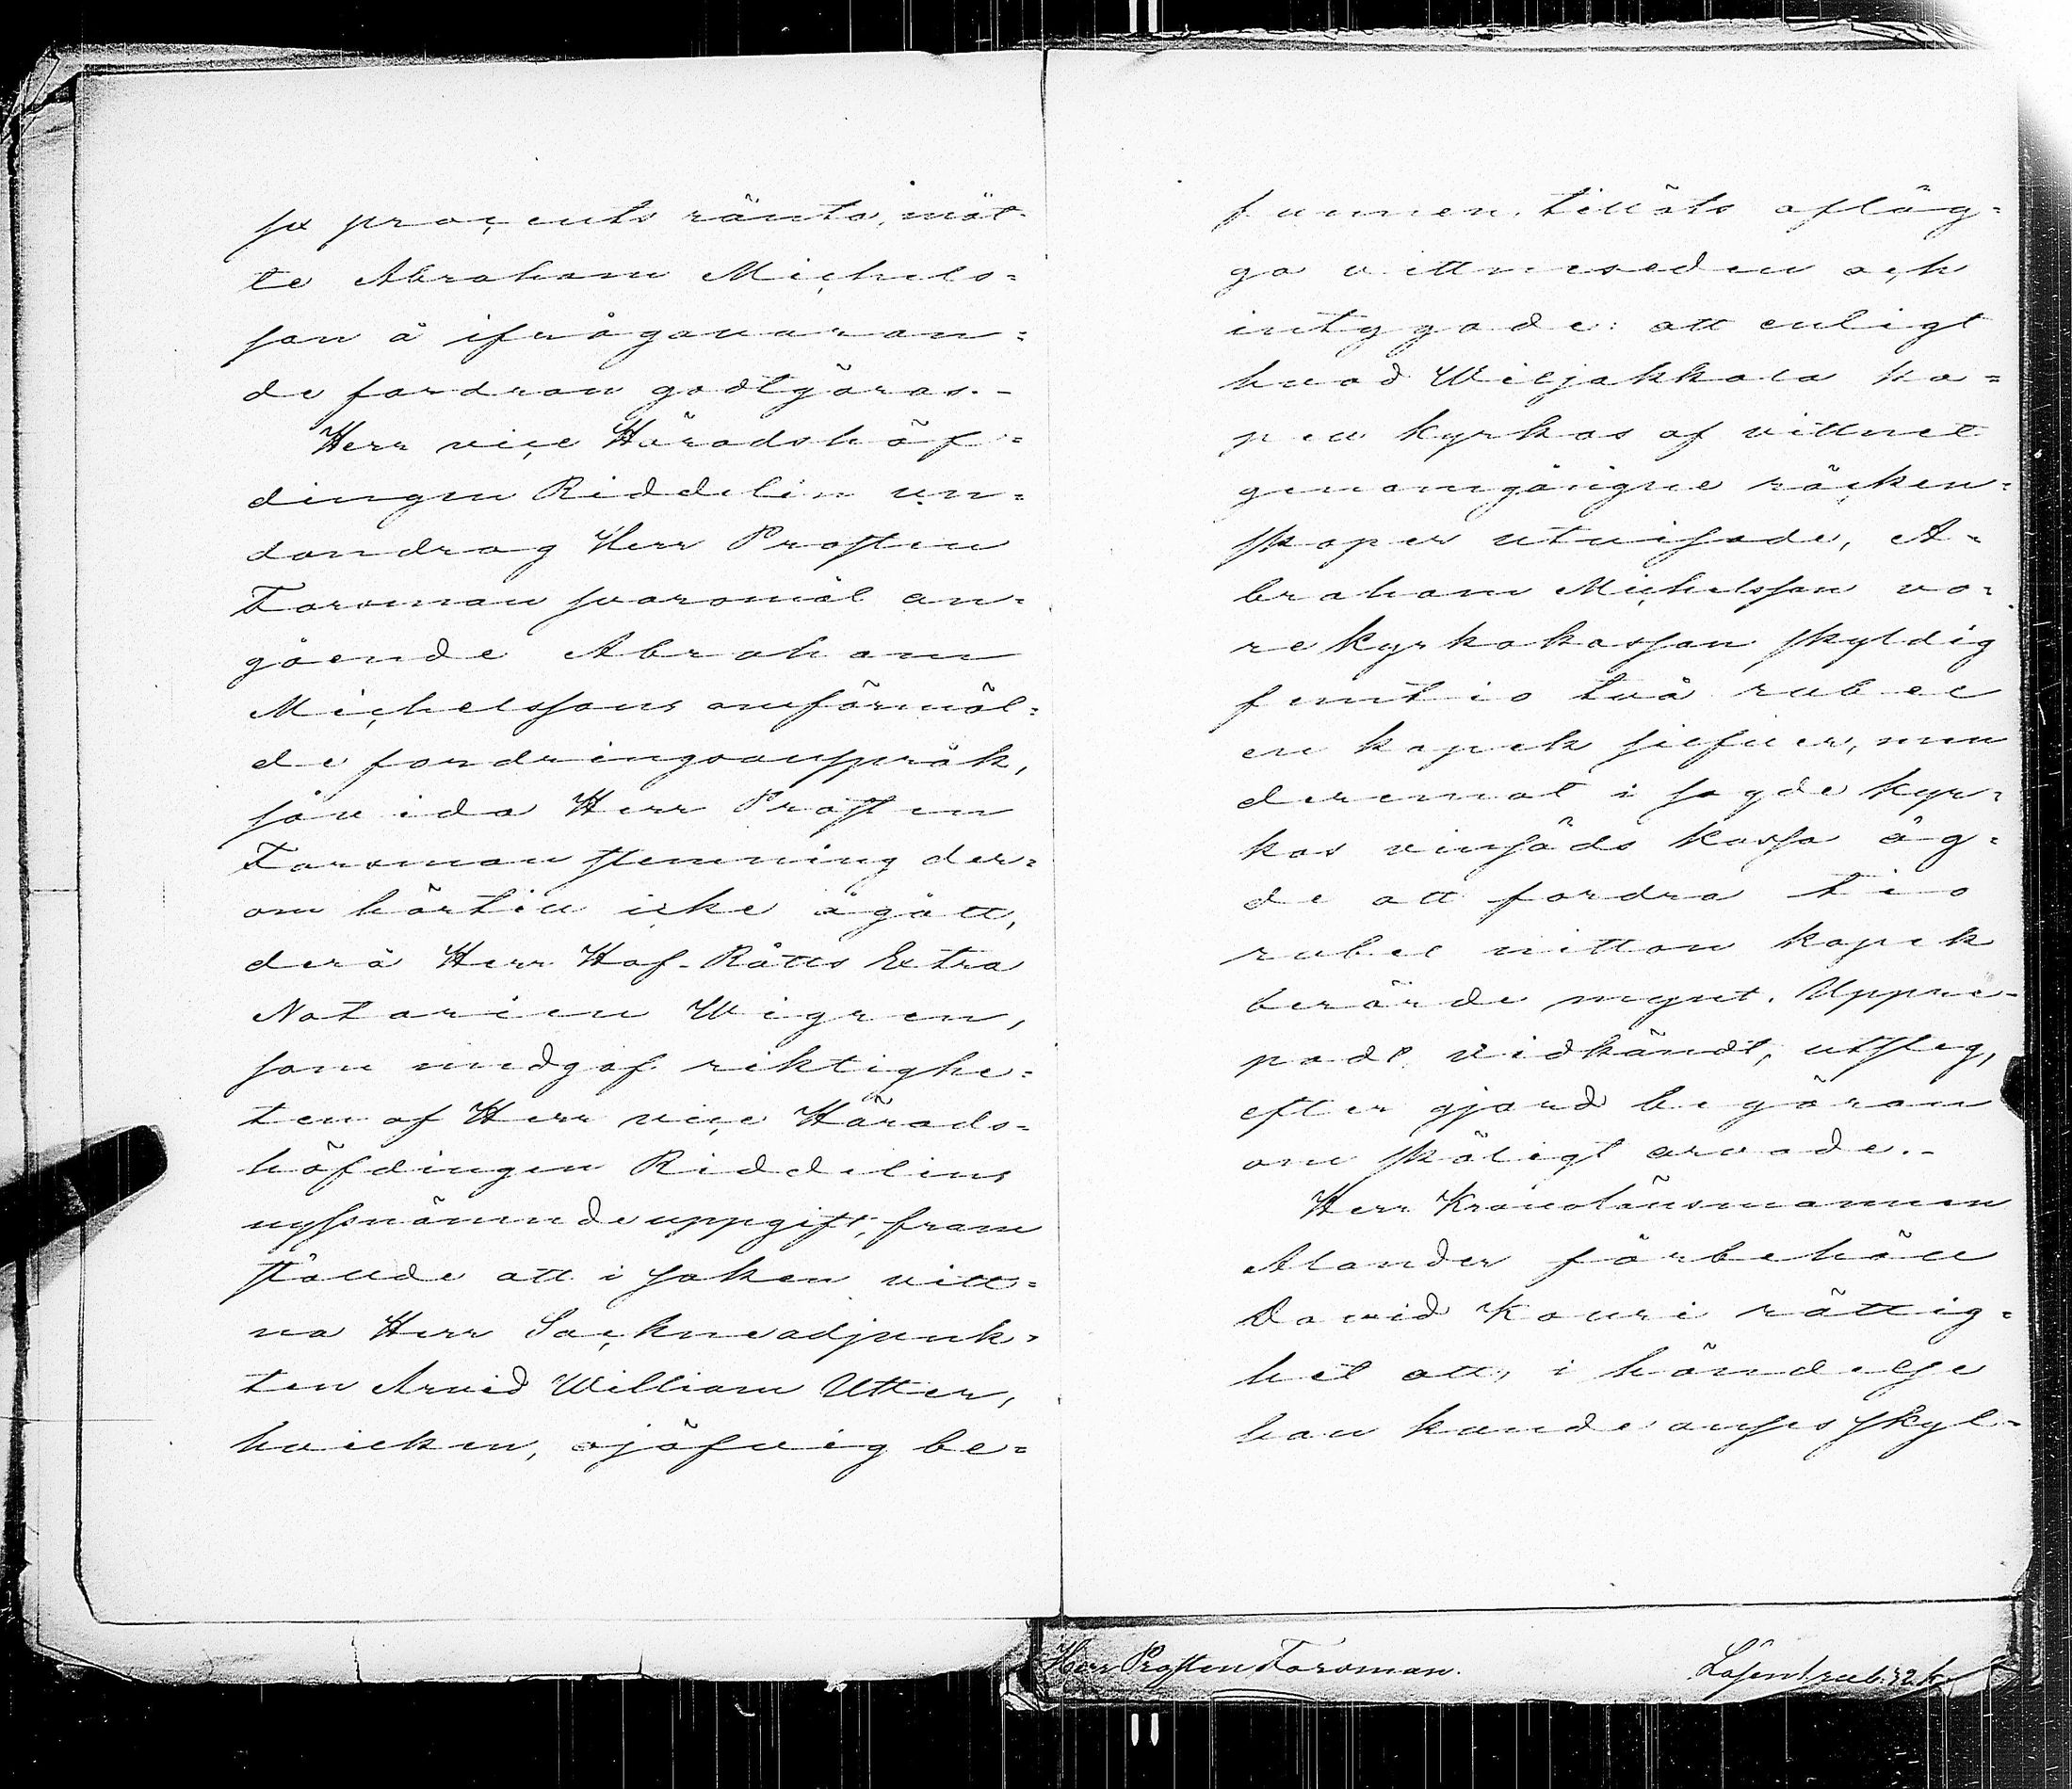 sex procents ränta, mät-
te Abraham Michels=
son å ifrågavaran=
de fordran godtgöras.-
Herr vice Häradshöf=
dingen Riddelin un=
dandrog Herr Prosten
Forsman svaromål an=
gående Abraham
Michelssons omförmäl=
de fordringsanspråk,
såvida Herr Prosten
Forsman stemning der=
om härtill icke ågått,
derå Herr Hof-Rätts Extra
Notarien Wigren,
som medgaf riktighe=
ten af Herr vice Härads=
höfdingen Riddelins
nyssnämnde uppgift, fram
stälde att i saken vitt=
na Herr Sockneadjunk=
ten Arvid William Utter,
hvilken, ojäfvig be=
funnen, tilläts afläg=
ga vittneseden och
intygade: att enligt
hvad Wiljakkala ka=
pell kyrkas af vittnet
genomgångne räcken=
skaper utvisade, A=
braham Michelsson vo=
re kyrkokassan skyldig
femtio två rubel
en kopek silfver, men
deremot i sagde kyr=
kas vinsäds kassa äg=
de att fordra tio
rubel nitton kopek
berörde mynt. Uppre-
padt, vidkändt, utsteg,
efter gjord begäran
om skäligt arvode.-
Herr Kronolänsmannen
Alander förbehöll
David Kouri rättig=
het att, i händelse
han kunde anses skyl-
Herr Prosten Forsman.
Lösen 1 rub. 32 k